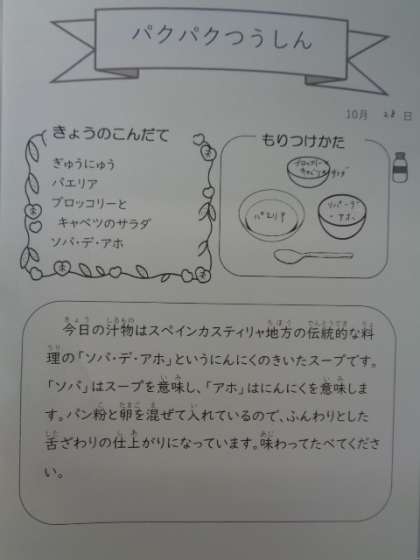 パクパクつうしん
10月 28 日
きょうのこんだて
ぎゅうにゅう
パエリア
ブロッコリーと
キャベツのサラダ
ソパ・デ・アホ
もりつけかた
ブロッコリーと
キャベツのサラダ
パエリア
ソパ・デ
・アホ
今日の汁物はスペインカスティリャ地方の伝統的な料
理の「ソパ・デ・アホ」というにんにくのきいたスープです。
「ソパ」はスープを意味し、「アホ」はにんにくを意味しま
す。パン粉と卵を混ぜて入れているので、ふんわりとした
舌ざわりの仕上がりになっています。味わってたべてくださ
い。